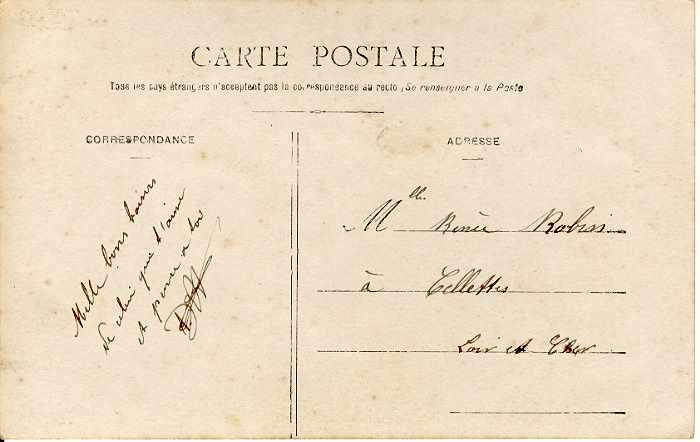 CARTE POSTALE
Tous les pays étrangers n'acceptent pas la correspondance au recto (Se renseigner à la Poste
CORRESPONDANCE
Mille bons baisers
de celui que t'aime
et pense a toi
ADRESSE
Mlle Renée Robin
à Cellettes
Loir et Cher